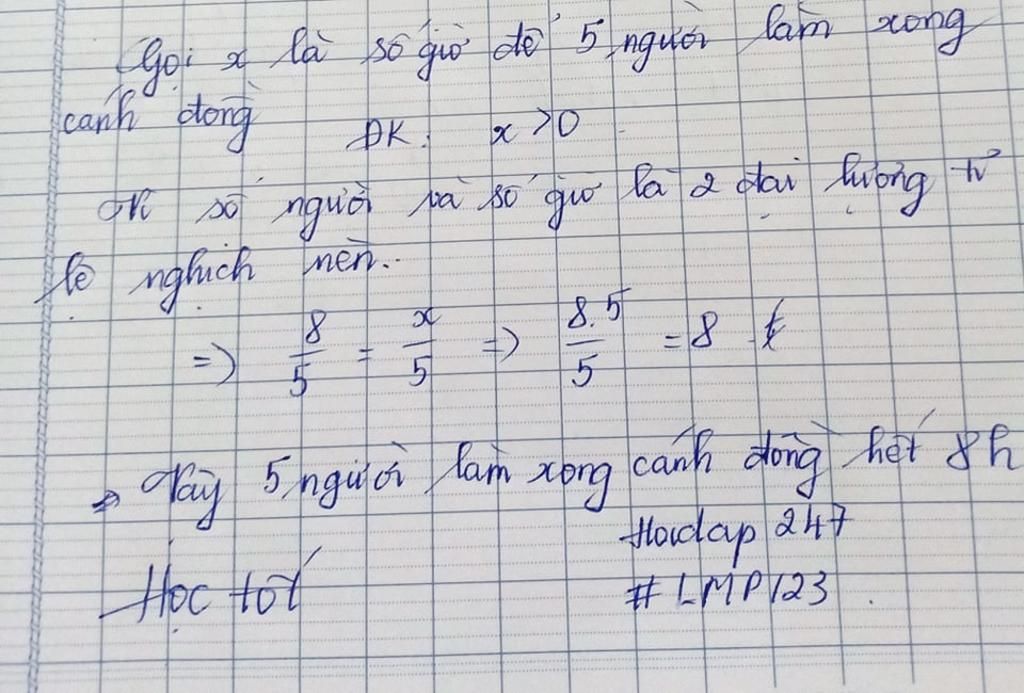 Gọi x là số giờ để 5 người làm xong
cánh đồng ĐK: x > 0
Vì số người và số giờ là 2 đại lượng tỉ
lệ nghịch nên..
=> 8/5 = x/5 => 8.5/5 = 8
=> Vậy 5 người làm xong cánh đồng hết 8h
Hoidap 247
Học tốt # LMP123.